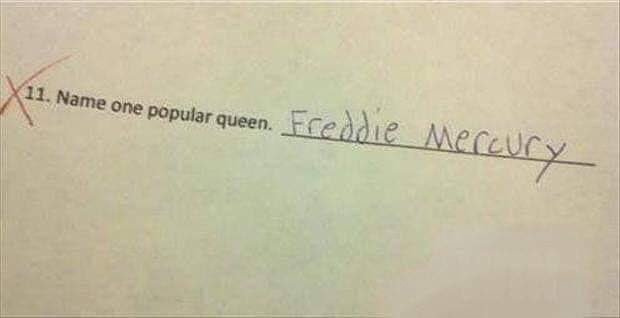 11. Name one popular queen. Freddie Mercury